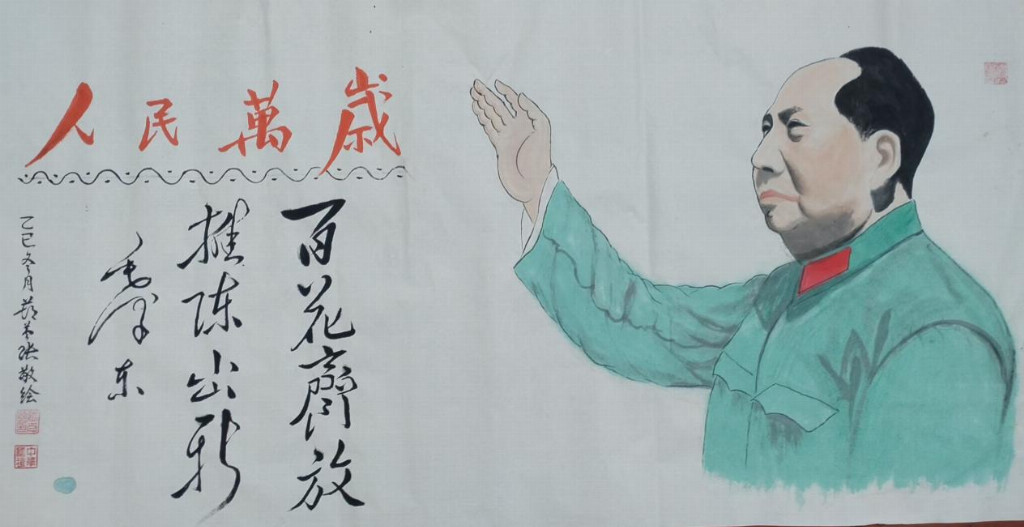 人民萬歲
百花齊放
推陈出新
毛泽东
乙巳冬月 张敬绘